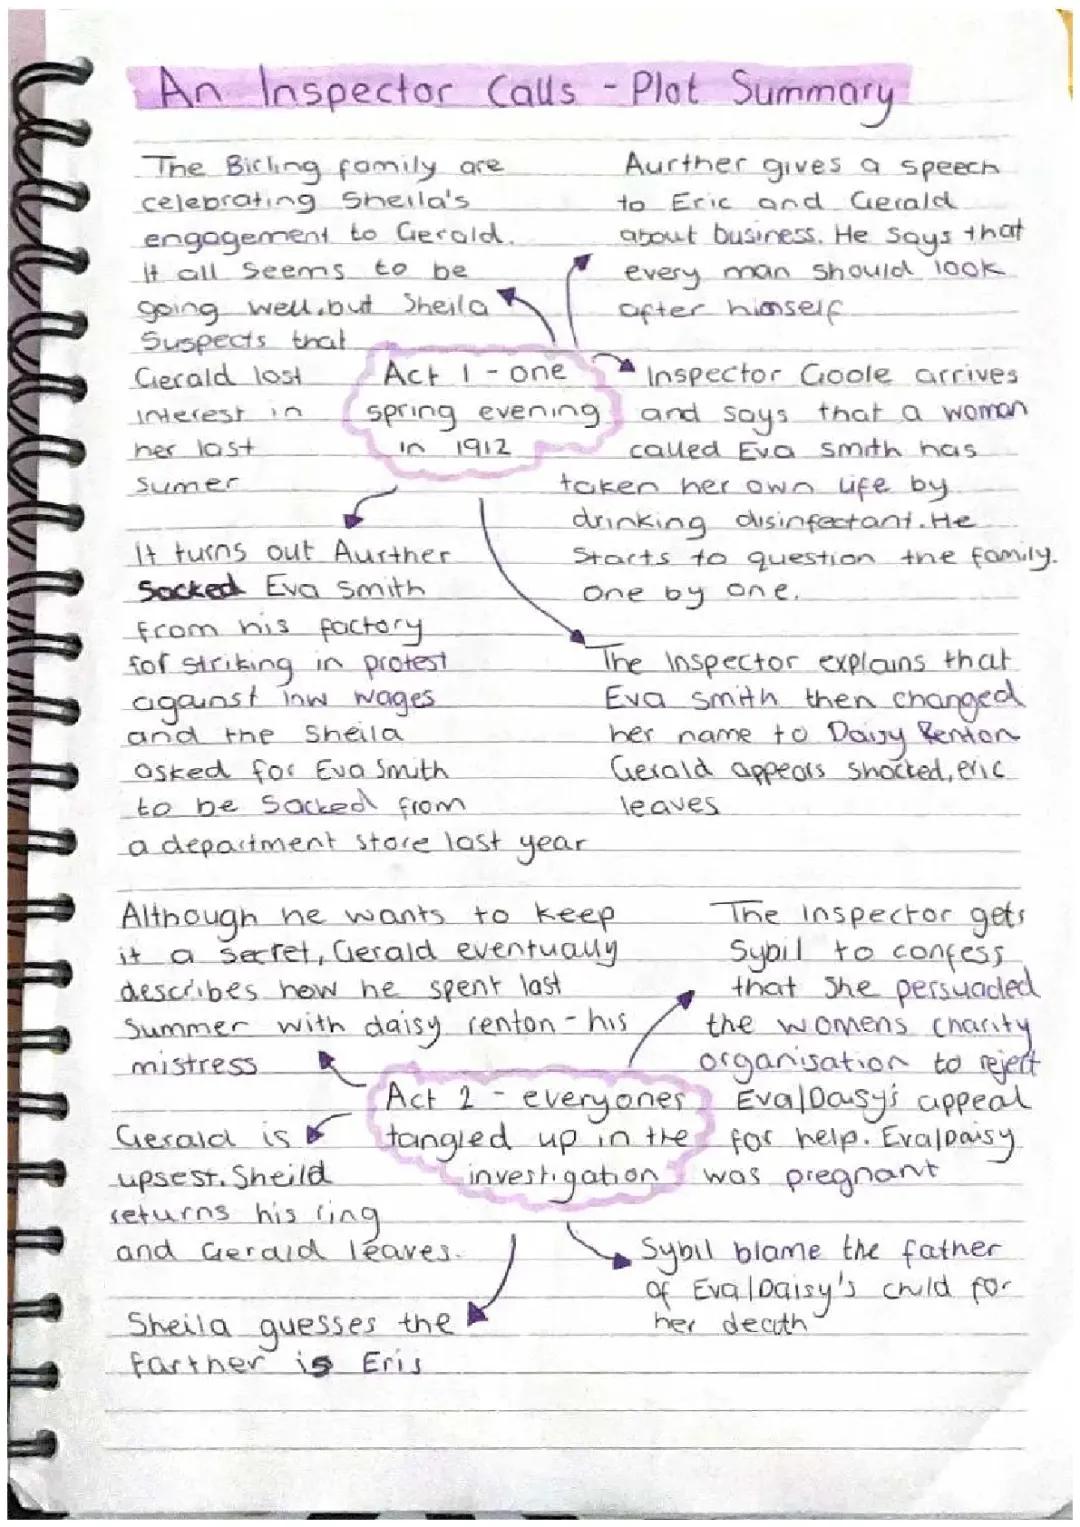 An Inspector Calls - Plot Summary
The Birling family are
celebrating Sheila's
engagement to Gerald.
It all seems to be
going well, but Sheila
Suspects that
Gerald lost
interest in
her last
sumer
Aurther gives a speech
to Eric and Gerald
about business. He says that
every man should look
after himself
Act 1 - one
spring evening
in 1912
Inspector Goole arrives
and says that a woman
called Eva smith has
taken her own life by
drinking disinfectant. He
starts to question the family.
one by one.
It turns out Aurther
Sacked Eva Smith
from his factory
for striking in protest
against low wages
and the Sheila
asked for Eva Smith
to be Sacked from
a department store last year
The Inspector explains that
Eva smith then changed
her name to Daisy Renton
Gerald appears shocked, eric
leaves
Although he wants to keep
it a secret, Gerald eventually
describes how he spent last
Summer with daisy renton - his
mistress
The inspector gets
Sybil to confess
that she persuaded
the womens charity
organisation to reject
Eva/Daisy's appeal
for help. Eva/Daisy
was pregnant
Act 2 - everyones
tangled up in the
investigation
Gerald is
upsest. Sheild
returns his ring
and Gerald leaves.
Sybil blame the father
of Eva/Daisy's child for
her death
Sheila guesses the
farther is Eris